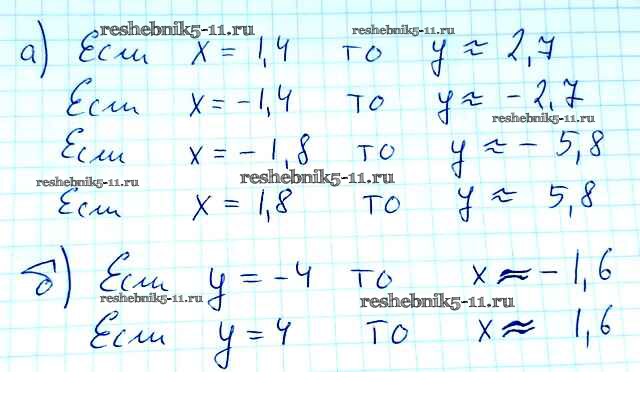 reshebnik5-11.ru reshebnik5-11.ru
а) Если x = 1,4 то y ≈ 2,7
Если x = -1,4 то y ≈ -2,7
reshebnik5-11.ru
Если x = -1,8 то y ≈ -5,8
reshebnik5-11.ru reshebnik5-11.ru
Если x = 1,8 то y ≈ 5,8
б) Если y = -4 то x ≈ -1,6
reshebnik5-11.ru reshebnik5-11.ru
Если y = 4 то x ≈ 1,6